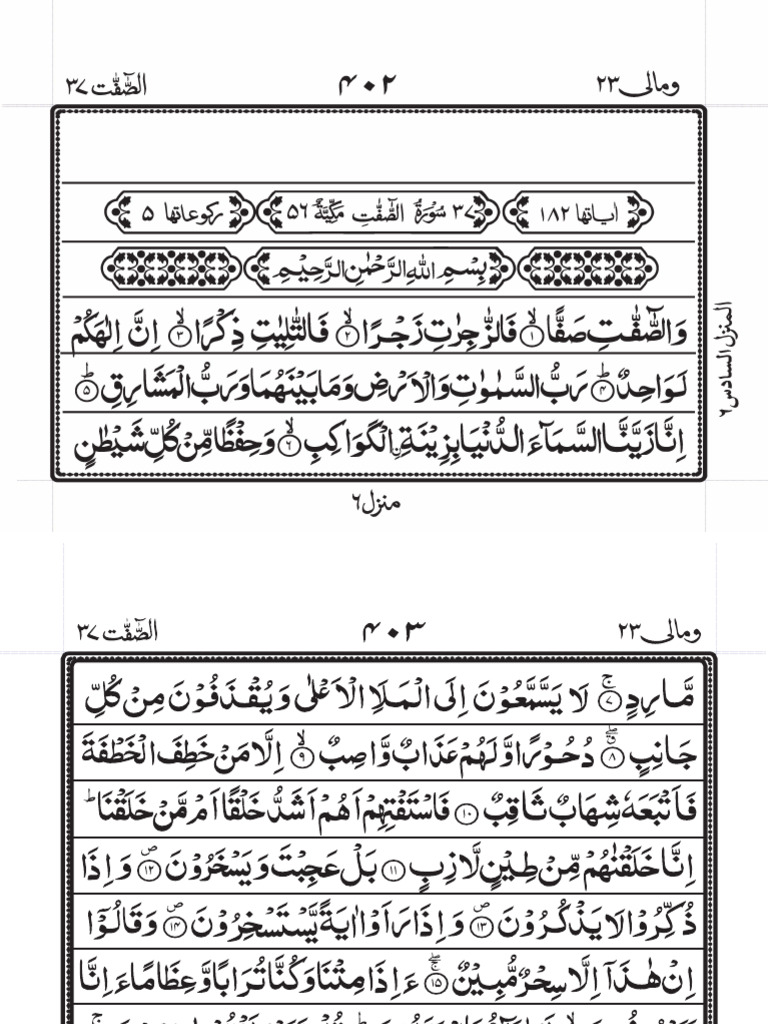 ومالی ۲۳ ۴۰۲ الصّٰٓفّٰت ۳۷
اٰیاتها ۱۸۲ ۳۷ سُوْرَةُ الصّٰٓفّٰتِ مَكِّیَّةٌ ۵۶ رکوعاتها ۵
بِسْمِ اللّٰهِ الرَّحْمٰنِ الرَّحِیْمِ
وَالصّٰٓفّٰتِ صَفًّا ۙ﴿۱﴾ فَالزّٰجِرٰتِ زَجْرًا ۙ﴿۲﴾ فَالتّٰلِیٰتِ ذِكْرًا ۙ﴿۳﴾ اِنَّ اِلٰهَكُمْ
لَوَاحِدٌ ؕ﴿۴﴾ رَبُّ السَّمٰوٰتِ وَالْاَرْضِ وَمَا بَیْنَهُمَا وَرَبُّ الْمَشَارِقِ ؕ﴿۵﴾
اِنَّا زَیَّنَّا السَّمَآءَ الدُّنْیَا بِزِیْنَةِ ِ۟الْكَوَاكِبِ ۙ﴿۶﴾ وَحِفْظًا مِّنْ كُلِّ شَیْطٰنٍ
المنزل السادس ۶
منزل ۶
ومالی ۲۳ ۴۰۳ الصّٰٓفّٰت ۳۷
مَّارِدٍ ۚ﴿۷﴾ لَا یَسَّمَّعُوْنَ اِلَی الْمَلَاِ الْاَعْلٰی وَیُقْذَفُوْنَ مِنْ كُلِّ
جَانِبٍ ۖۗ﴿۸﴾ دُحُوْرًا وَّلَهُمْ عَذَابٌ وَّاصِبٌ ۙ﴿۹﴾ اِلَّا مَنْ خَطِفَ الْخَطْفَةَ
فَاَتْبَعَهٗ شِهَابٌ ثَاقِبٌ ﴿۱۰﴾ فَاسْتَفْتِهِمْ اَهُمْ اَشَدُّ خَلْقًا اَمْ مَّنْ خَلَقْنَا ؕ
اِنَّا خَلَقْنٰهُمْ مِّنْ طِیْنٍ لَّازِبٍ ﴿۱۱﴾ بَلْ عَجِبْتَ وَیَسْخَرُوْنَ ۪﴿۱۲﴾ وَاِذَا
ذُكِّرُوْا لَا یَذْكُرُوْنَ ۪﴿۱۳﴾ وَاِذَا رَاَوْا اٰیَةً یَّسْتَسْخِرُوْنَ ۪﴿۱۴﴾ وَقَالُوْۤا
اِنْ هٰذَاۤ اِلَّا سِحْرٌ مُّبِیْنٌ ۚۖ﴿۱۵﴾ ءَاِذَا مِتْنَا وَكُنَّا تُرَابًا وَّعِظَامًا ءَاِنَّا